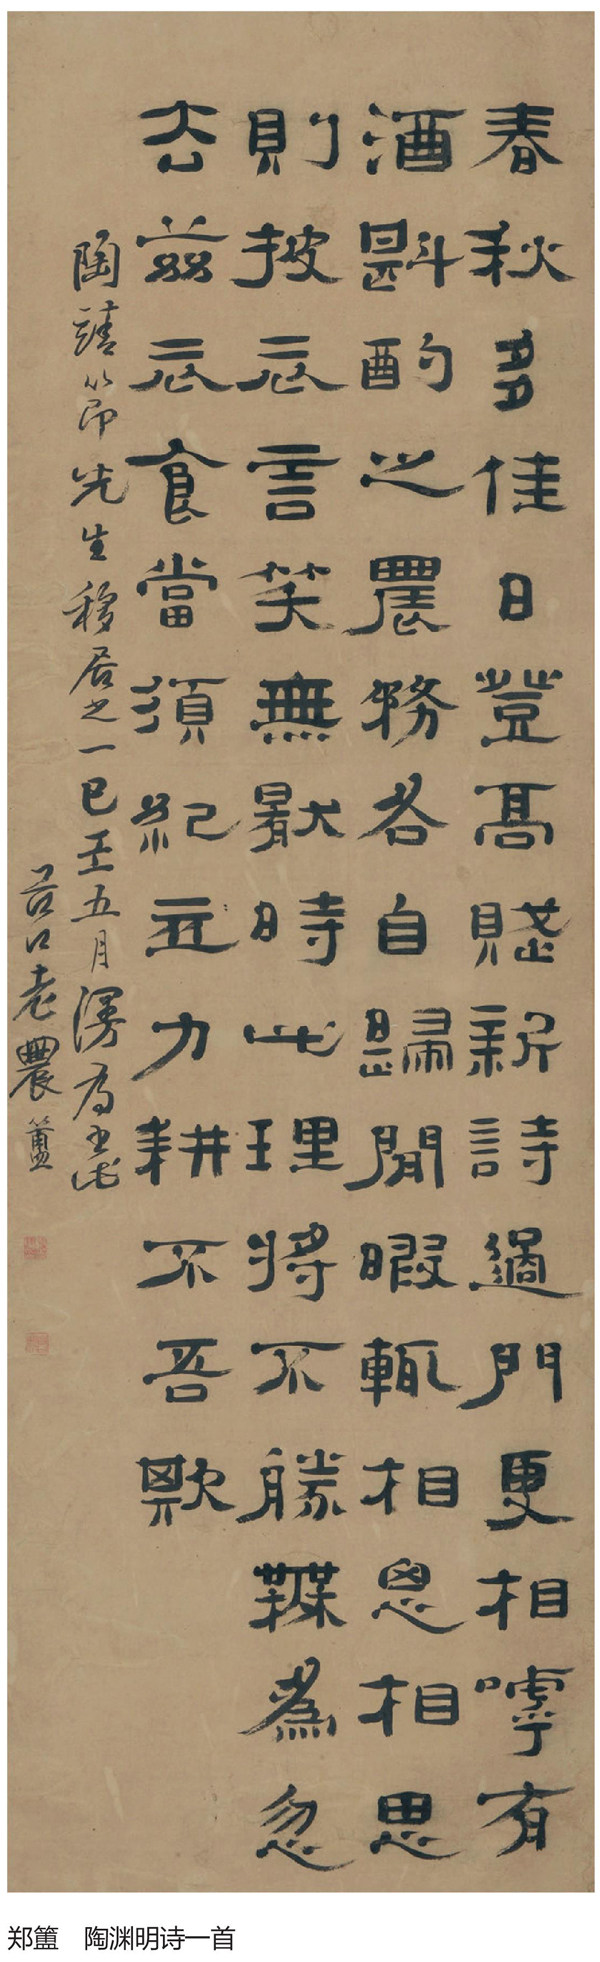 春秋多佳日登高賦新詩過門更相嘑有
酒斟酌之農務各自歸閒暇輒相思相思
則披衣言笑無猒時此理將不勝鞢為忽
去茲衣食當須紀力耕不吾欺
陶靖節先生移居之一己五月漫為書此
谷口老農簠
郑簠 陶渊明诗一首